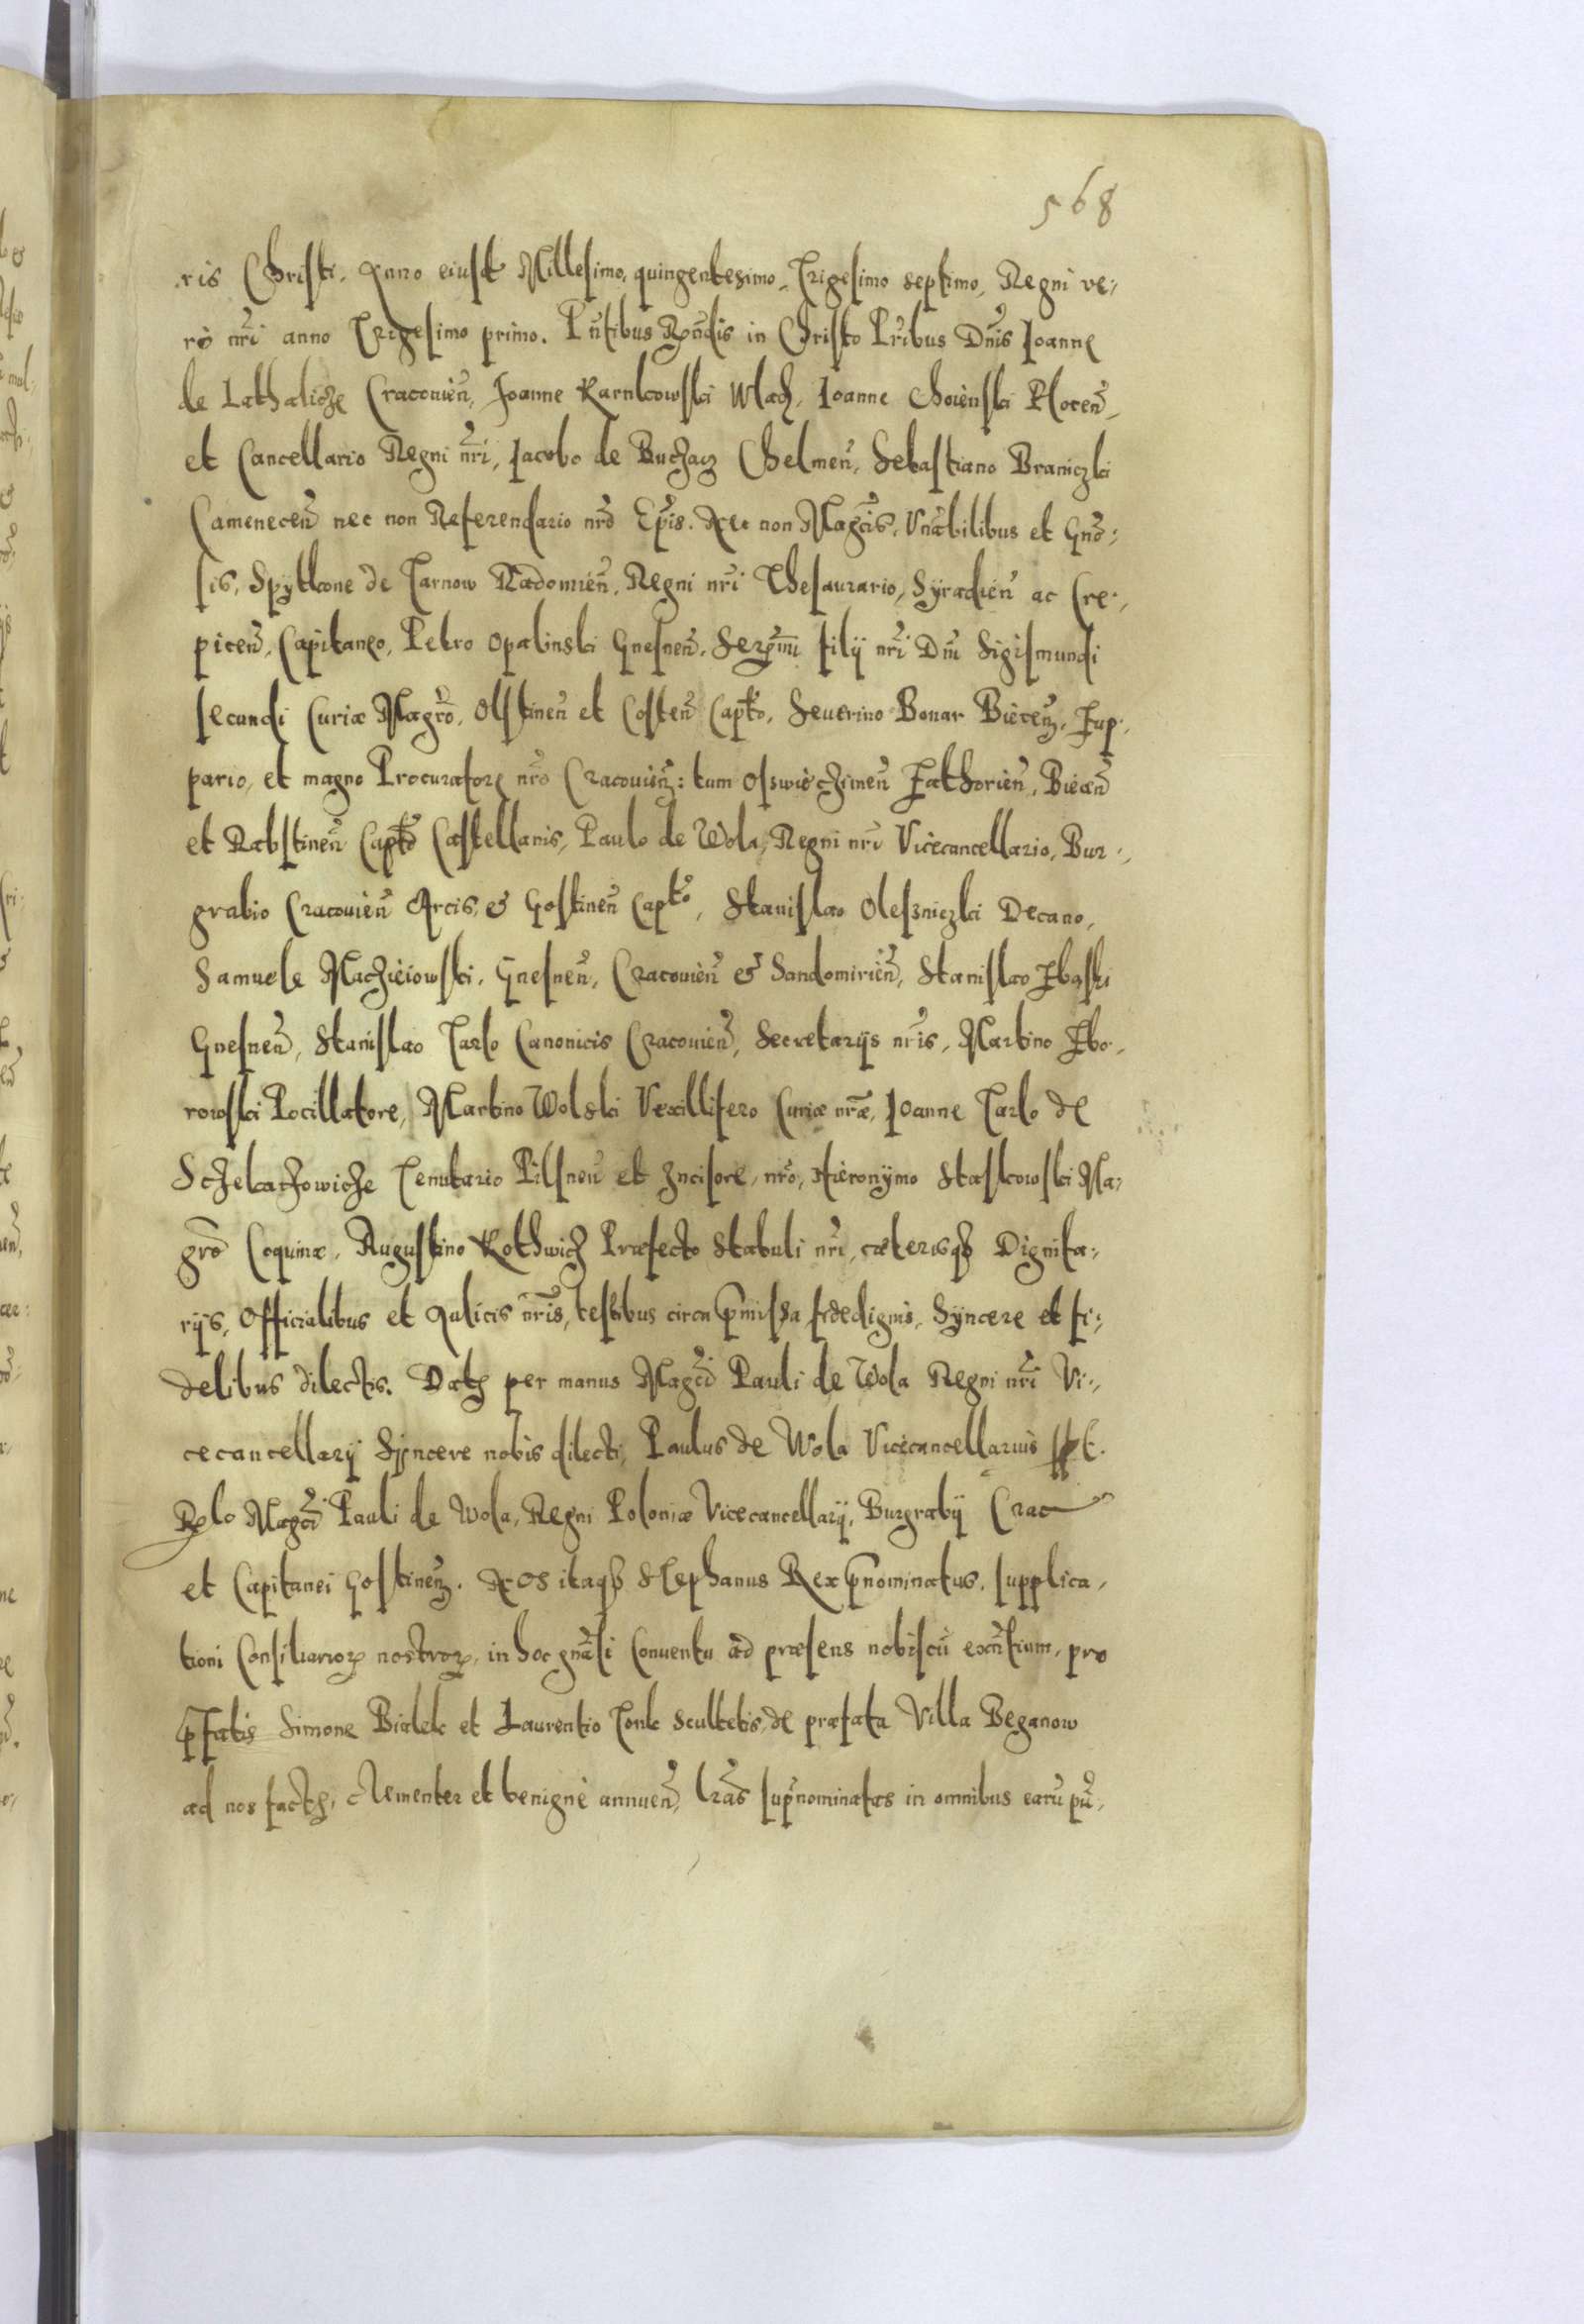 568
ris Christi. Anno eiusd Millesimo, quingentesimo, Trigesimo septimo, Regni ve,
ro nrĩ anno Trigesimo primo. Pñtibus Rñdis in Christo Pribus Dñis Ioanne
de Lathalicze Cracouieñ, Joanne Karnkowski Wlad, Ioanne Choienski Ploceñ,
et Cancellario Regni nrĩ, Iacobo de Buchacz Chelmeñ, Sebastiano Braniczki
Cameneceñ nec non Referendario nrõ Epĩs. Nec non Magcis, Vnãbilibus et Gnõ,
sis, Spytkone de Tarnow Radomieñ, Regni nrĩ Thesaurario, Syradieñ ac Cre,
piceñ, Capitaneo, Petro Opalinski Gnesneñ, Sermi filij nrĩ Dñi Sigismundi
secundi Curiæ Magrõ, Olstineñ et Costeñ Capto, Seuerino Bonar Bieceñ, Zup,
pario, et magno Procuratore nrõ Cracouieñ: tum Osswieczimeñ Zathorieñ, Bieceñ
et Rabstineñ Capto Castellanis, Paulo de Wola, Regni nrĩ Vicecancellario, Bur,
grabio Cracouieñ Arcis, & Gostineñ Capto, Stanislao Olesniczki Decano,
Samuele Maczieiowski, Gnesneñ, Cracouieñ & Sandomirieñ, Stanislao Zbaski
Gnesneñ, Stanislao Tarlo Canonicis Cracouieñ, Secretarijs nrĩs, Martino Zbo,
rowski Pocillatore, Martino Wolski Vexillifero Curiæ nrãe, Ioanne Tarlo de
Sczekarzowicze Tenutario Pilsneñ et Incisore, nrõ, Hieronymo Staskowski Ma,
grõ Coquinæ, Augustino Kothwicz Præfecto Stabuli nrĩ, cæterisqz Dignita,
rijs, Officialibus et Aulicis nrĩs, testibus circa p̃missa fidedignis, Syncere et fi,
delibus dilectis. Dat per manus Magci Pauli de Wola Regni nrĩ Vi,
cecancellarij Syncere nobis dilecti, Paulus de Wola Vicecancellarius sspt.
Relo Magci Pauli de Wola, Regni Poloniæ Vicecancellarij, Burgrabij Crac
et Capitanei Gostineñ. Nos itaqz Stephanus Rex p̃nominatus, supplica,
tioni Consiliarioꝝ nostroꝝ, in hoc gnãli Conuentu ad præsens nobiscũ exñtium, pro
p̃fatis Simone Bialek et Laurentio Tonk Scultetis, de præfata Villa Beganow
ad nos fact, clementer et benignè annueñ, lrãs sup̃nominatas in omnibus earũ pũ,